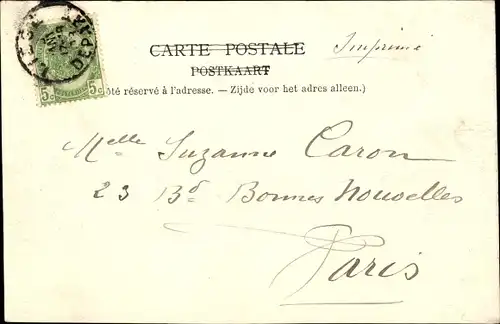 CARTE POSTALE
Imprimé
POSTKAART
ôté réservé à l'adresse. — Zijde voor het adres alleen.)
5c 5c
Melle Suzanne Caron
23 Bd Bonnes Nouvelles
Paris